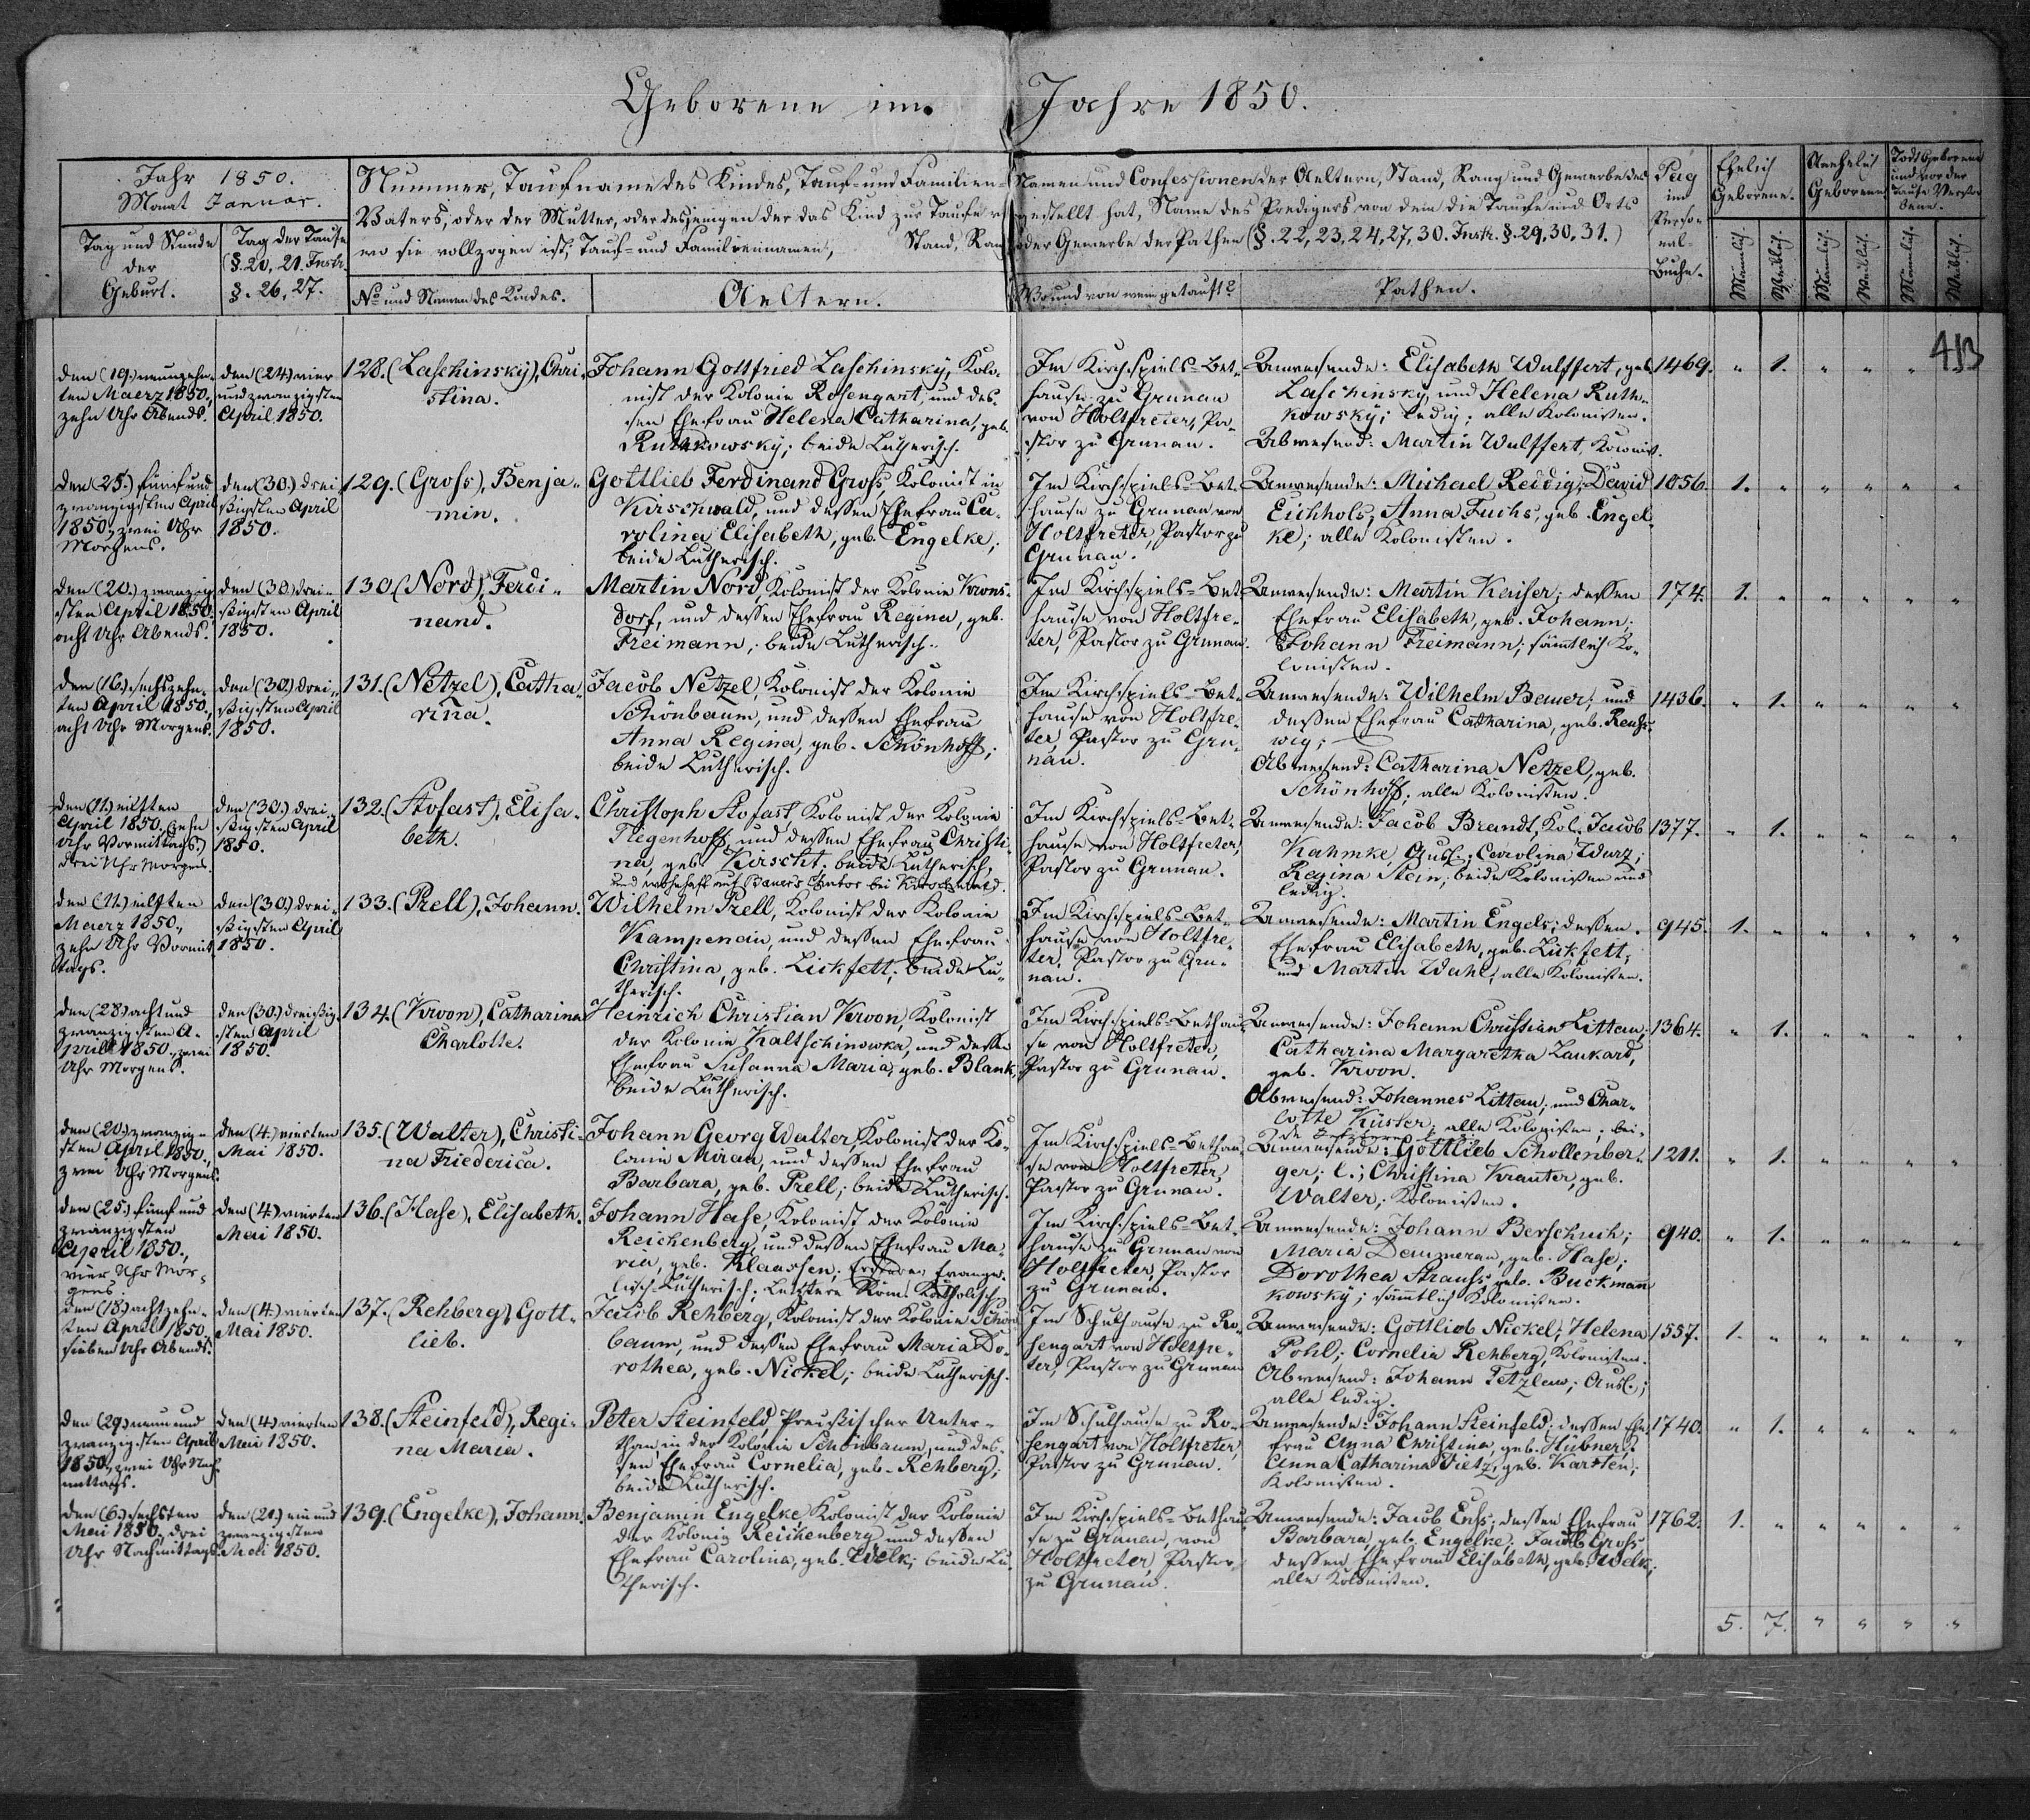 Geborene im Jahre 1850.
413
Jahr 1850.
Monat Januar.
Tag und Stunde
der
Geburt.
Tag der Taufe
(§. 20, 21. Instr.
§. 26, 27.
Nummer, Taufname des Kindes, Tauf- und Familien-
Vaters, oder der Mutter, oder desjenigen der das Kind zur Taufe
wo sie vollzogen ist, Tauf- und Familiennamen, Stand, Rang
No und Namen des Kindes.
Aeltern.
Namen und Confessionen der Aeltern, Stand, Rang und Gewerbe des
gestellt hat, Name des Predigers von dem die Taufe und Orts
oder Gewerbe der Pathen (§. 22, 23, 24, 27, 30. Instr. §. 29, 30, 31.)
Wo und von wem getauft?
Pathen.
Pag
im
Perso-
nal-
Buche.
Ehelich
Geborene.
Unehelich
Geborene.
Todt Geborene
und vor der
Taufe Verstor
bene.
Männlich.
Weiblich.
Männlich.
Weiblich.
Männlich.
Weiblich.
den (19.) neunzehn-
ten Maerz 1850,
zehn Uhr Abends.
den (24) vier
und zwanzigsten
April 1850.
128. (Laschinsky), Chri-
stina.
Johann Gottfried Laschinsky, Kolo-
nist der Kolonie Rosengart, und des-
sen Ehefrau Helena Catharina, geb.
Ruthkowsky; beide Lutherisch.
Im Kirchspiels-Bet-
hause zu Grunau
von Holtfreter, Pa-
stor zu Grunau.
Anwesende: Elisabeth Wulffert, geb.
Laschinsky, und Helena Ruth-
kowsky; ledig; alle Kolonisten.
Abwesend: Martin Wulffert, Kolonist.
1469. " 1. " " "
den (25.) fünf und
zwanzigsten April
1850, zwei Uhr
Morgens.
den (30.) drei-
ßigsten April
1850.
129. (Gross), Benja-
min.
Gottlieb Ferdinand Gross, Kolonist in
Kirschwald, und dessen Ehefrau Ca-
rolina Elisabeth, geb. Engelke;
beide Lutherisch.
Im Kirchspiels-Bet-
hause zu Grunau von
Holtfreter, Pastor zu
Grunau.
Anwesende: Michael Reidig, David
Eichholz, Anna Fuchs, geb. Engel-
ke; alle Kolonisten.
1056. 1. " " " " "
den (20.) zwanzig-
sten April 1850.
acht Uhr Abends.
den (30.) drei-
ßigsten April
1850.
130. (Nord), Ferdi-
nand.
Martin Nord, Kolonist der Kolonie Krons-
dorf, und dessen Ehefrau Regina, geb.
Freimann; beide Lutherisch.
Im Kirchspiels-Bet-
hause von Holtfre-
ter, Pastor zu Grunau.
Anwesende: Martin Kaiser; dessen
Ehefrau Elisabeth, geb. Johann;
Johann Freimann; sämtlich Ko-
lonisten.
174. 1. " " " " "
den (16.) sechszehn-
ten April 1850.,
acht Uhr Morgens.
den (30.) drei-
ßigsten April
1850.
131. (Netzel), Catha-
rina.
Jacob Netzel, Kolonist der Kolonie
Schönbaum, und dessen Ehefrau
Anna Regina, geb. Schönhoff;
beide Lutherisch.
Im Kirchspiels-Bet-
hause von Holtfre-
ter, Pastor zu Gru-
nau.
Anwesende: Wilhelm Bauer; und
dessen Ehefrau Catharina, geb.
Abwesend: Catharina Netzel, geb.
Schönhoff; alle Kolonisten.
1436. " 1. " " " "
den (11.) eilften
April 1850. (zehn
Uhr Vormittags.)
drei Uhr Morgens.
den (30.) drei-
ßigsten April
1850.
132. (Stofast), Elisa-
beth.
Christoph Stofast, Kolonist der Kolonie
Tiegenhoff, und dessen Ehefrau Christi-
na, geb. Kirscht; beide Lutherisch,
und wohnhaft auf
Im Kirchspiels-Bet-
hause von Holtfreter,
Pastor zu Grunau.
Anwesende: Jacob Brandt, Kol. Jacob
Kahmke, Ausl.; Carolina Wurz;
Regina Stein; beide Kolonisten und
ledig.
1377. " 1. " " " "
den (11.) eilften
Maerz 1850.,
zehn Uhr Vormit-
tags.
den (30.) drei-
ßigsten April
1850.
133. (Prell), Johann.
Wilhelm Prell, Kolonist der Kolonie
Kampenau, und dessen Ehefrau
Christina, geb. Lickfett; beide Lu-
therisch.
Im Kirchspiels-Bet-
hause von Holtfre-
ter, Pastor zu Gru-
nau.
Anwesende: Martin Engels; dessen
Ehefrau Elisabeth, geb. Lickfett;
und Martin Wahl; alle Kolonisten.
945. 1. " " " " "
den (28.) acht und
zwanzigsten A-
pril 1850., zwei
Uhr Morgens.
den (30.) dreißig-
sten April
1850.
134. (Kroon), Catharina
Charlotte.
Heinrich Christian Kroon, Kolonist
der Kolonie Kaltschinowka, und dessen
Ehefrau Susanna Maria, geb. Blank,
beide Lutherisch.
Im Kirchspiels-Bethau-
se von Holtfreter,
Pastor zu Grunau.
Anwesende: Johann Christian Littau;
Catharina Margaretha Laukard,
geb. Kroon.
Abwesend: Johannes Littau; und Char-
lotte Küster; alle Kolonisten; bei-
1364. " 1. " " " "
den (20.) zwanzig-
sten April 1850.,
zwei Uhr Morgens.
den (4.) vierten
Mai 1850.
135. (Walter), Christi-
na Friederica.
Johann Georg Walter, Kolonist der Ko-
lonie Mirau, und dessen Ehefrau
Barbara, geb. Prell; beide Lutherisch.
Im Kirchspiels-Bethau-
se von Holtfreter,
Pastor zu Grunau.
Anwesende: Gottlieb Schollenber-
ger; l.; Christina Krauter, geb.
Walter; Kolonisten.
1211. " 1. " " " "
den (25.) fünf und
zwanzigsten
April 1850.,
vier Uhr Mor-
gens.
den (4.) vierten
Mai 1850.
136. (Hase), Elisabeth.
Johann Hase, Kolonist der Kolonie
Reichenberg, und dessen Ehefrau Ma-
ria, geb. Klaassen; Ersterer Evange-
lisch-Lutherisch; Letztere Röm. Katholisch.
Im Kirchspiels-Bet-
hause zu Grunau von
Holtfreter, Pastor
zu Grunau.
Anwesende: Johann Berschuck;
Maria Daumeran, geb. Hase;
Dorothea Strauss, geb. Buckman-
kowsky; sämmtlich Kolonisten.
940. " 1. " " " "
den (18.) achtzehn-
ten April 1850.,
sieben Uhr Abends.
den (4.) vierten
Mai 1850.
137. (Rehberg), Gott-
lieb.
Jacob Rehberg, Kolonist der Kolonie Schön-
baum, und dessen Ehefrau Maria Do-
rothea, geb. Nickel; beide Lutherisch.
Im Schulhause zu Ro-
sengart von Holtfre-
ter, Pastor zu Grunau
Anwesende: Gottlieb Nickel; Helena
Pohl; Cornelia Rehberg, Kolonisten.
Abwesend: Johann Tetzlaw; Ausl.;
alle ledig.
1557. 1. " " " " "
den (29.) neun und
zwanzigsten April
1850, zwei Uhr Nach-
mittags.
den (4.) vierten
Mai 1850.
138. (Steinfeld), Regi-
na Maria.
Peter Steinfeld, Preußischer Unter-
than in der Kolonie Schönbaum, und des-
sen Ehefrau Cornelia, geb. Rehberg;
beide Lutherisch.
Im Schulhause zu Ro-
sengart von Holtfreter,
Pastor zu Grunau.
Anwesende: Johann Steinfeld; dessen Ehe-
frau Anna Christina, geb. Hübner;
Anna Catharina Dietz, geb. Karsten;
Kolonisten.
1740. " 1. " " " "
den (6.) sechsten
Mai 1850, drei
Uhr Nachmittags.
den (21.) ein und
zwanzigsten
Mai 1850.
139. (Engelke), Johann.
Benjamin Engelke, Kolonist der Kolonie
der Kolonie Reichenberg, und dessen
Ehefrau Carolina, geb. Welk; beide Lu-
therisch.
Im Kirchspiels-Bethau-
se zu Grunau, von
Holtfreter, Pastor
zu Grunau.
Anwesende: Jacob Enss; dessen Ehefrau
Barbara, geb. Engelke; Jacob Gross
dessen Ehefrau Elisabeth, geb. Welk;
alle Kolonisten.
1762. 1. " " " " "
5. 7. " " " "